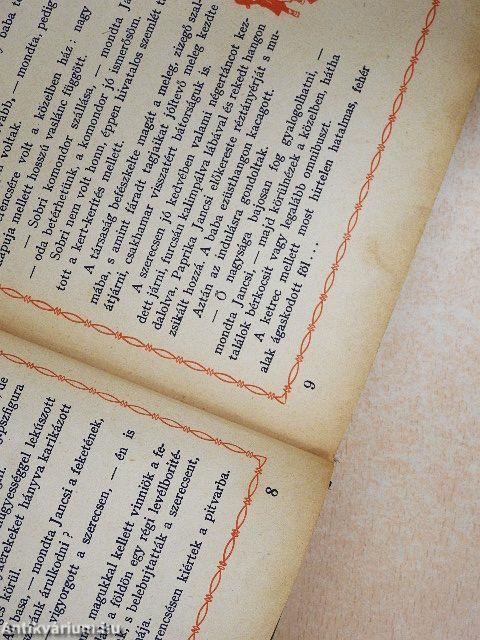 , de
s-pszfigura
ngyességgel lekúszott
kerekeket hányva karikázott
s körül.
— mondta Jancsi a feketének,
ánk árulkodni?
vigyorgott a szerecsen, — én is
magukkal kellett vinniök a fe-
a földön egy régi levélborité-
s belebujtatták a szerecsent,
rencsésen kiértek a pitvarba.
8
mondta, pedig
voltak.
rencsésére volt a közelben ház: nagy
kapuja mellett hosszú vaslánc függött.
— Sobri komondor szállása, — mondta Ja
— oda betérhetünk, a komondor jó ismerősöm.
Sobri nem volt honn, éppen hivatalos szemlét ta
tott a kert-kerítés mellett.
A társaság befészkelte magát a meleg, zizegő szal-
mába, s amint fáradt tagjaikat jóltevő meleg kezdte
átjárni, csakhamar visszatért bátorságuk is.
A szerecsen jó kedvében valami négertáncot kez-
dett járni, furcsán kalimpálva lábával és rekedt hangon
dalolva. Paprika Jancsi előkereste réztányérját s mu-
zsikált hozzá. A baba ezüsthangon kacagott.
Aztán az indulásra gondoltak.
— Ő nagysága bajosan fog gyalogolhatni, —
mondta Jancsi, — majd körülnézek a közelben hátha
találok bérkocsit vagy legalább omnibuszt.
A ketrec mellett most hirtelen hatalmas, fehér
alak ágaskodott föl...
9
Antikvárium.hu